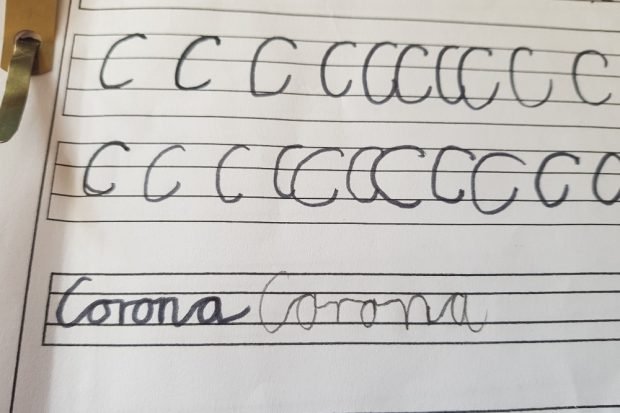 C C C C C C C C C C
C C C C C C C C C C C
Corona Corona